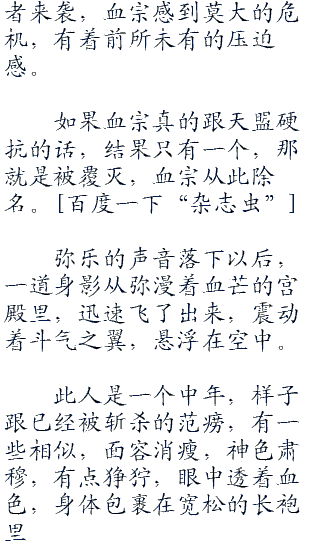 者来袭，血宗感到莫大的危
机，有着前所未有的压迫
感。
如果血宗真的跟天盟硬
抗的话，结果只有一个，那
就是被覆灭，血宗从此除
名。[百度一下“杂志虫”]
弥乐的声音落下以后，
一道身影从弥漫着血芒的宫
殿里，迅速飞了出来，震动
着斗气之翼，悬浮在空中。
此人是一个中年，样子
跟已经被斩杀的范痨，有一
些相似，面容消瘦，神色肃
穆，有点狰狞，眼中透着血
色，身体包裹在宽松的长袍
里